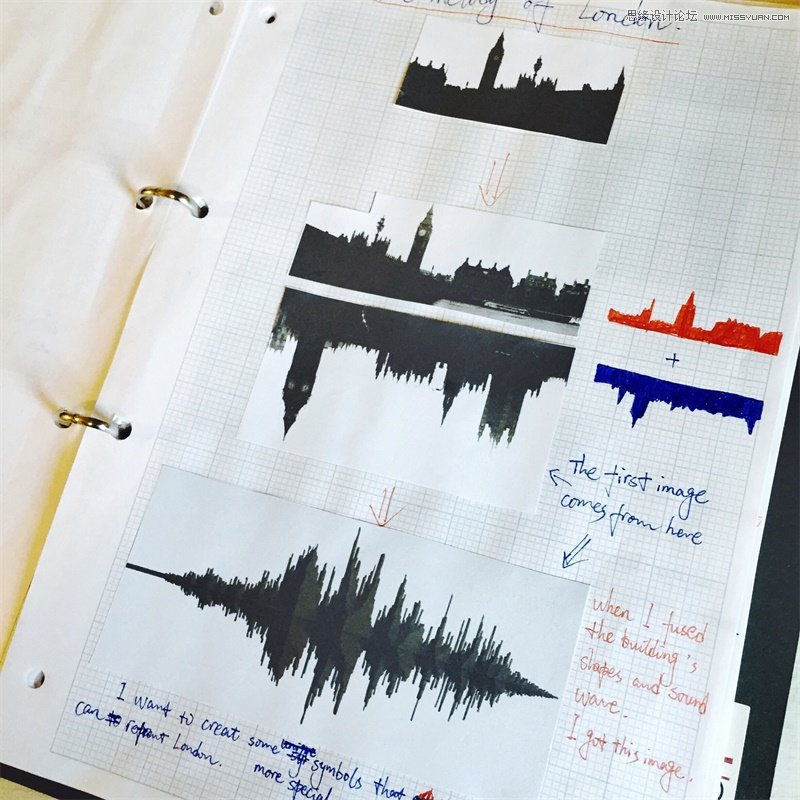 思缘设计论坛 WWW.MISSYUAN.COM
of London.
+
The first image
comes from here
When I fused
the building's
shapes and sound
wave.
I got this image.
I want to creat some symbols that
can London.
more special